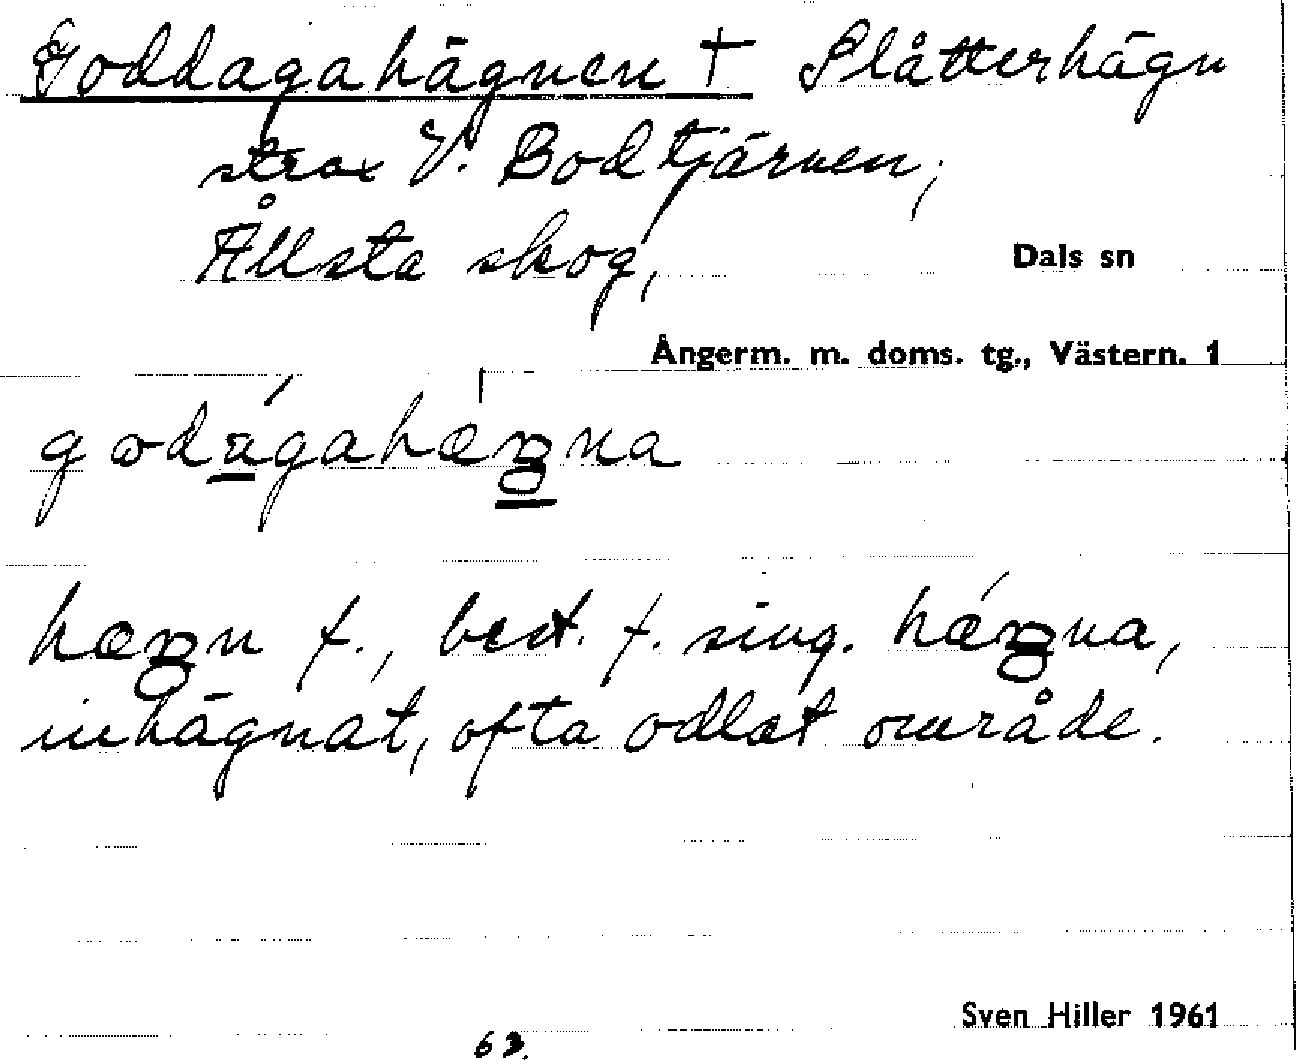 Goddagahägnen † Slåtterhägn
strax V. Bodtjärnen,
Ållsta skog,
Dals sn
Ångerm. m. doms. tg., Västern. 1
hæŋn f., best. f. sing. hǽŋna,
inhägnat, ofta odlat område.
Sven Hiller 1961
63.